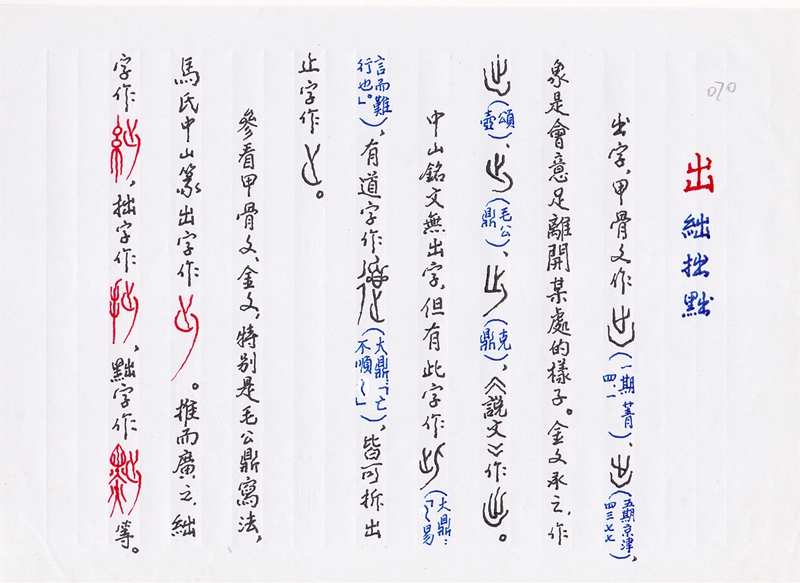 070
出 絀 拙 黜
出字,甲骨文作(一期菁四.一)、(五期京津四三七七),
象是會意足離開某處的樣子。金文承之,作
(頌壺)、(毛公鼎)、(克鼎),《說文》作。
中山銘文無出字,但有此字作(大鼎:「〻易
言而難行也。」),有道字作(大鼎「亡不順〻」),皆可拆出
止字作。
參看甲骨文、金文,特別是毛公鼎寫法,
馬氏中山篆出字作。推而廣之,絀
字作,拙字作,黜字作等。